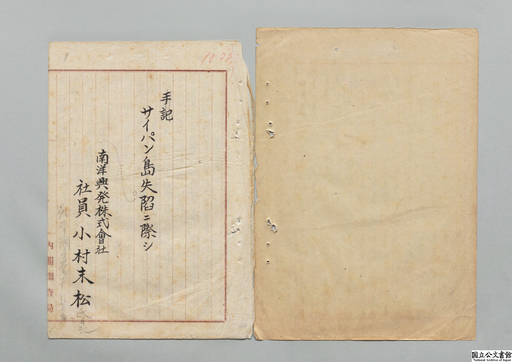 手記
サイパン島失陥ニ際シ
南洋興発株式會社
社員 小村末松
国立公文書館
National Archives of Japan